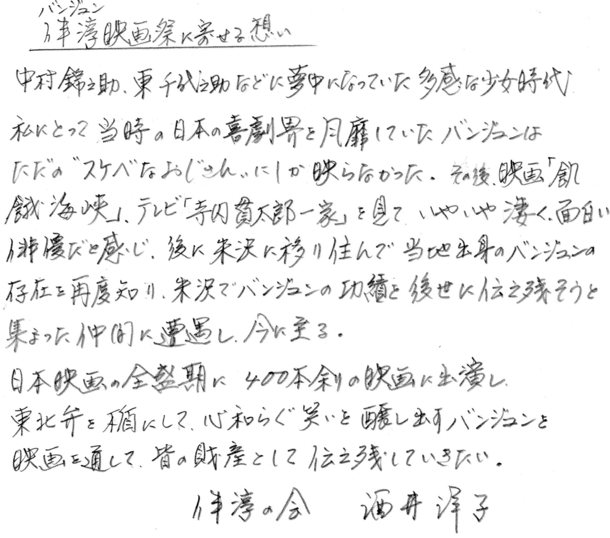 バンジュン
伴淳映画祭に寄せる想い
中村錦之助、東千代之助などに夢中になっていた多感な少女時代
私にとって当時の日本の喜劇界を風靡していたバンジュンは
ただの"スケベなおじさん"にしか映らなかった。その後、映画「飢
餓海峡」、テレビ「寺内貫太郎一家」を見て いやいや凄く、面白い
俳優だと感じ、後に米沢に移り住んで当地出身のバンジュンの
存在を再度知り、米沢でバンジュンの功績を後世に伝え残そうと
集まった仲間に遭遇し、今に至る。
日本映画の全盛期に 400本余りの映画に出演し
東北弁を楯にして、心和らぐ笑いを醸し出すバンジュンを
映画を通して、皆の財産として伝え残していきたい。
伴淳の会 酒井洋子